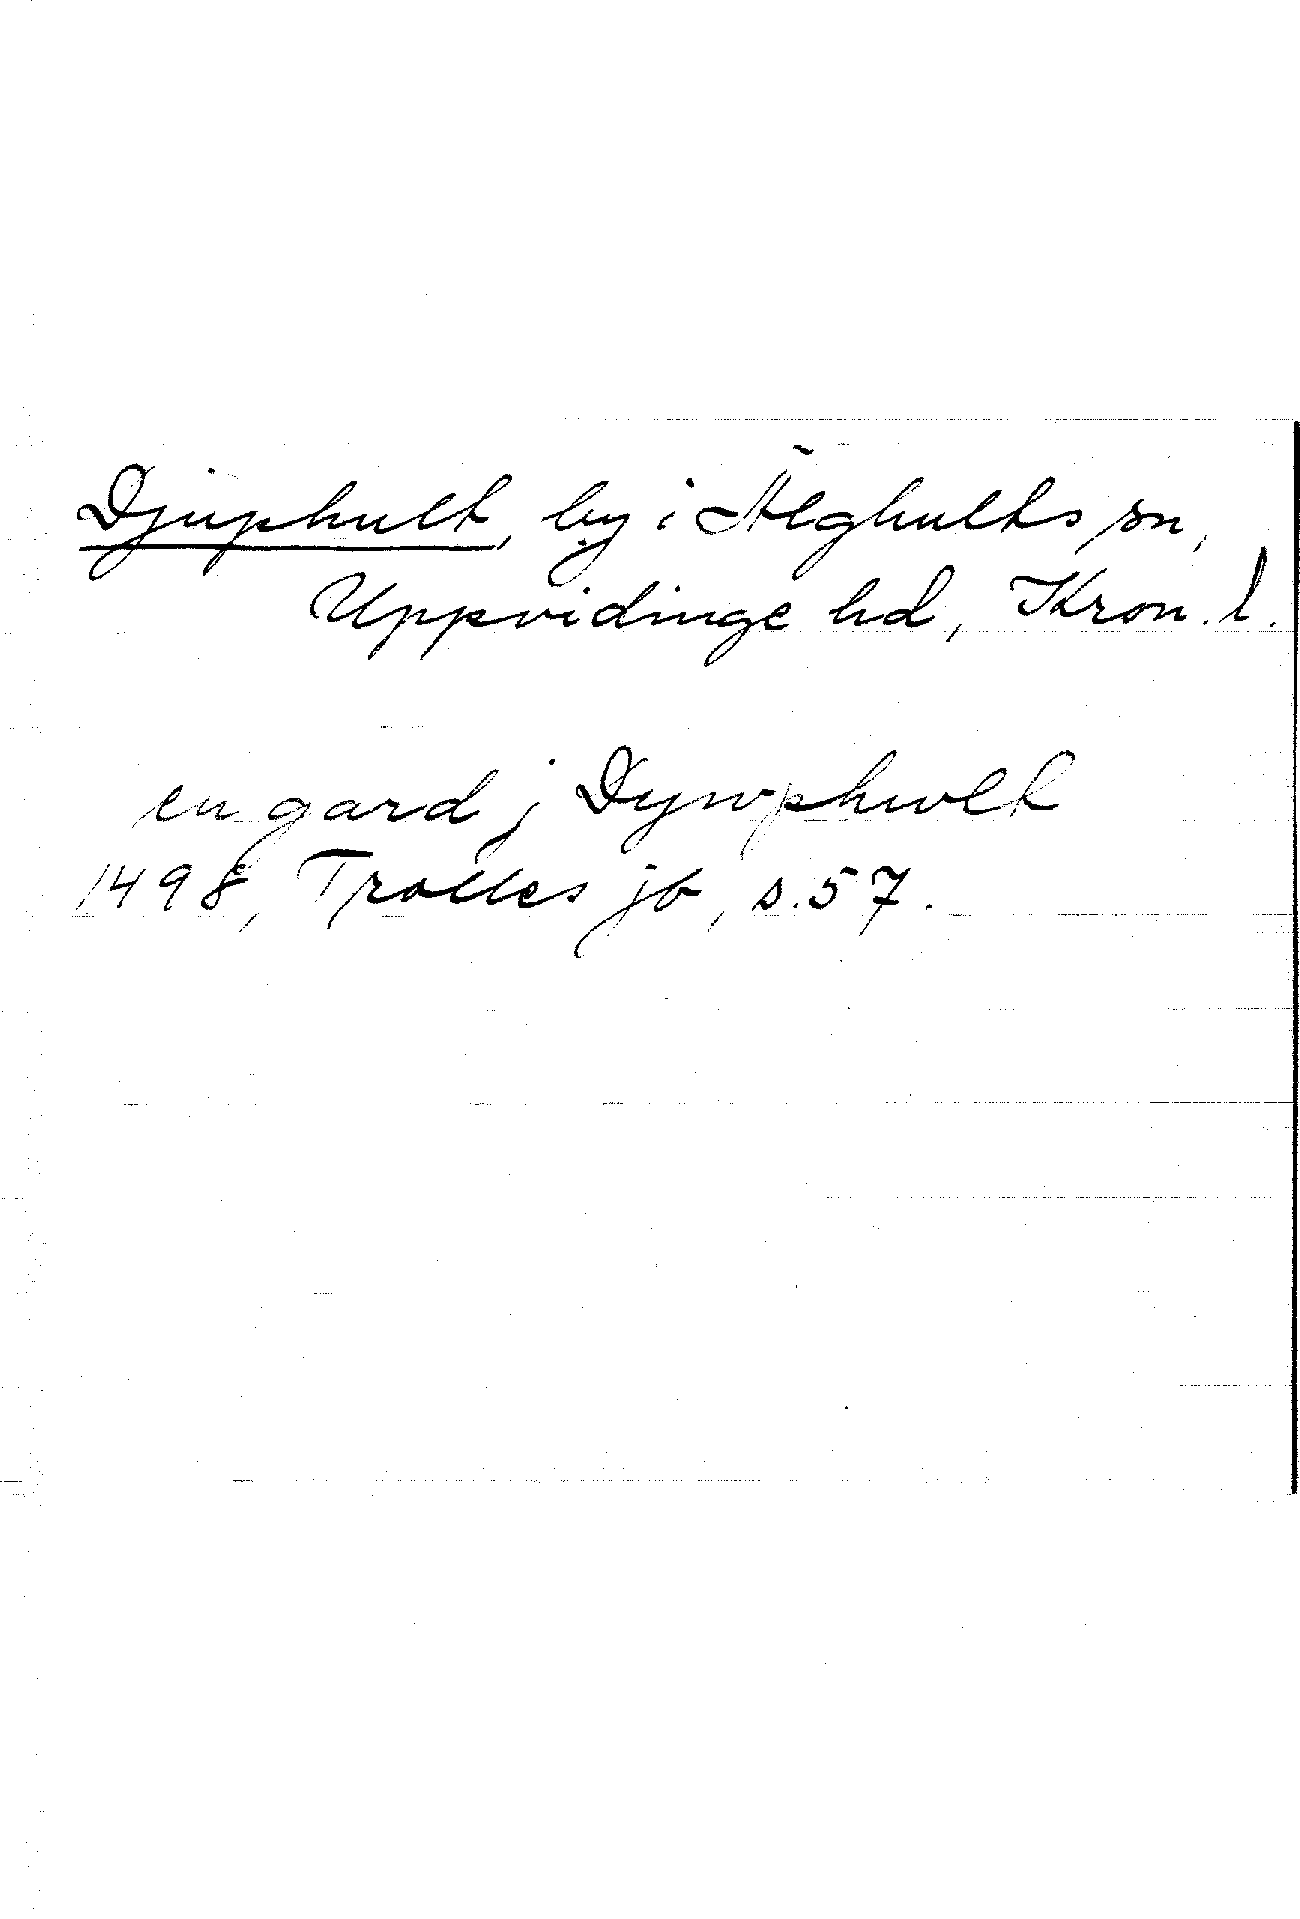 Djuphult, by i Älghults sn,
Uppvidinge hd, Kron. l.
en gard j Dywphwlt
1498, Trolles jb, s. 57.